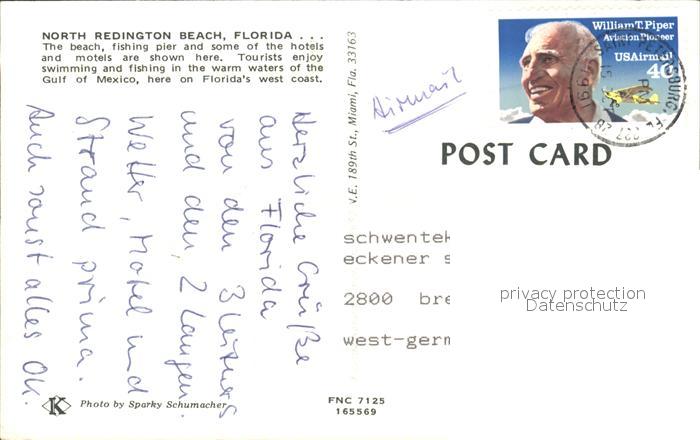 NORTH REDINGTON BEACH, FLORIDA . . .
The beach, fishing pier and some of the hotels
and motels are shown here. Tourists enjoy
swimming and fishing in the warm waters of the
Gulf of Mexico, here on Florida's west coast.
Herzliche Grüße
aus Florida
von den 3 
und den 2 Langen.
Wetter, Motel und
Strand prima.
Auch sonst alles OK.
K
Photo by Sparky Schumacher
V.E. 189th St., Miami, Fla. 33163
FNC 7125
165569
Airmail
William T. Piper
Aviation Pioneer
USAirmail
40
SAINT PETERSBURG, FL 337
PM
1991
POST CARD
schwentek
eckener s
2800 bre
west-germ
privacy protection
Datenschutz